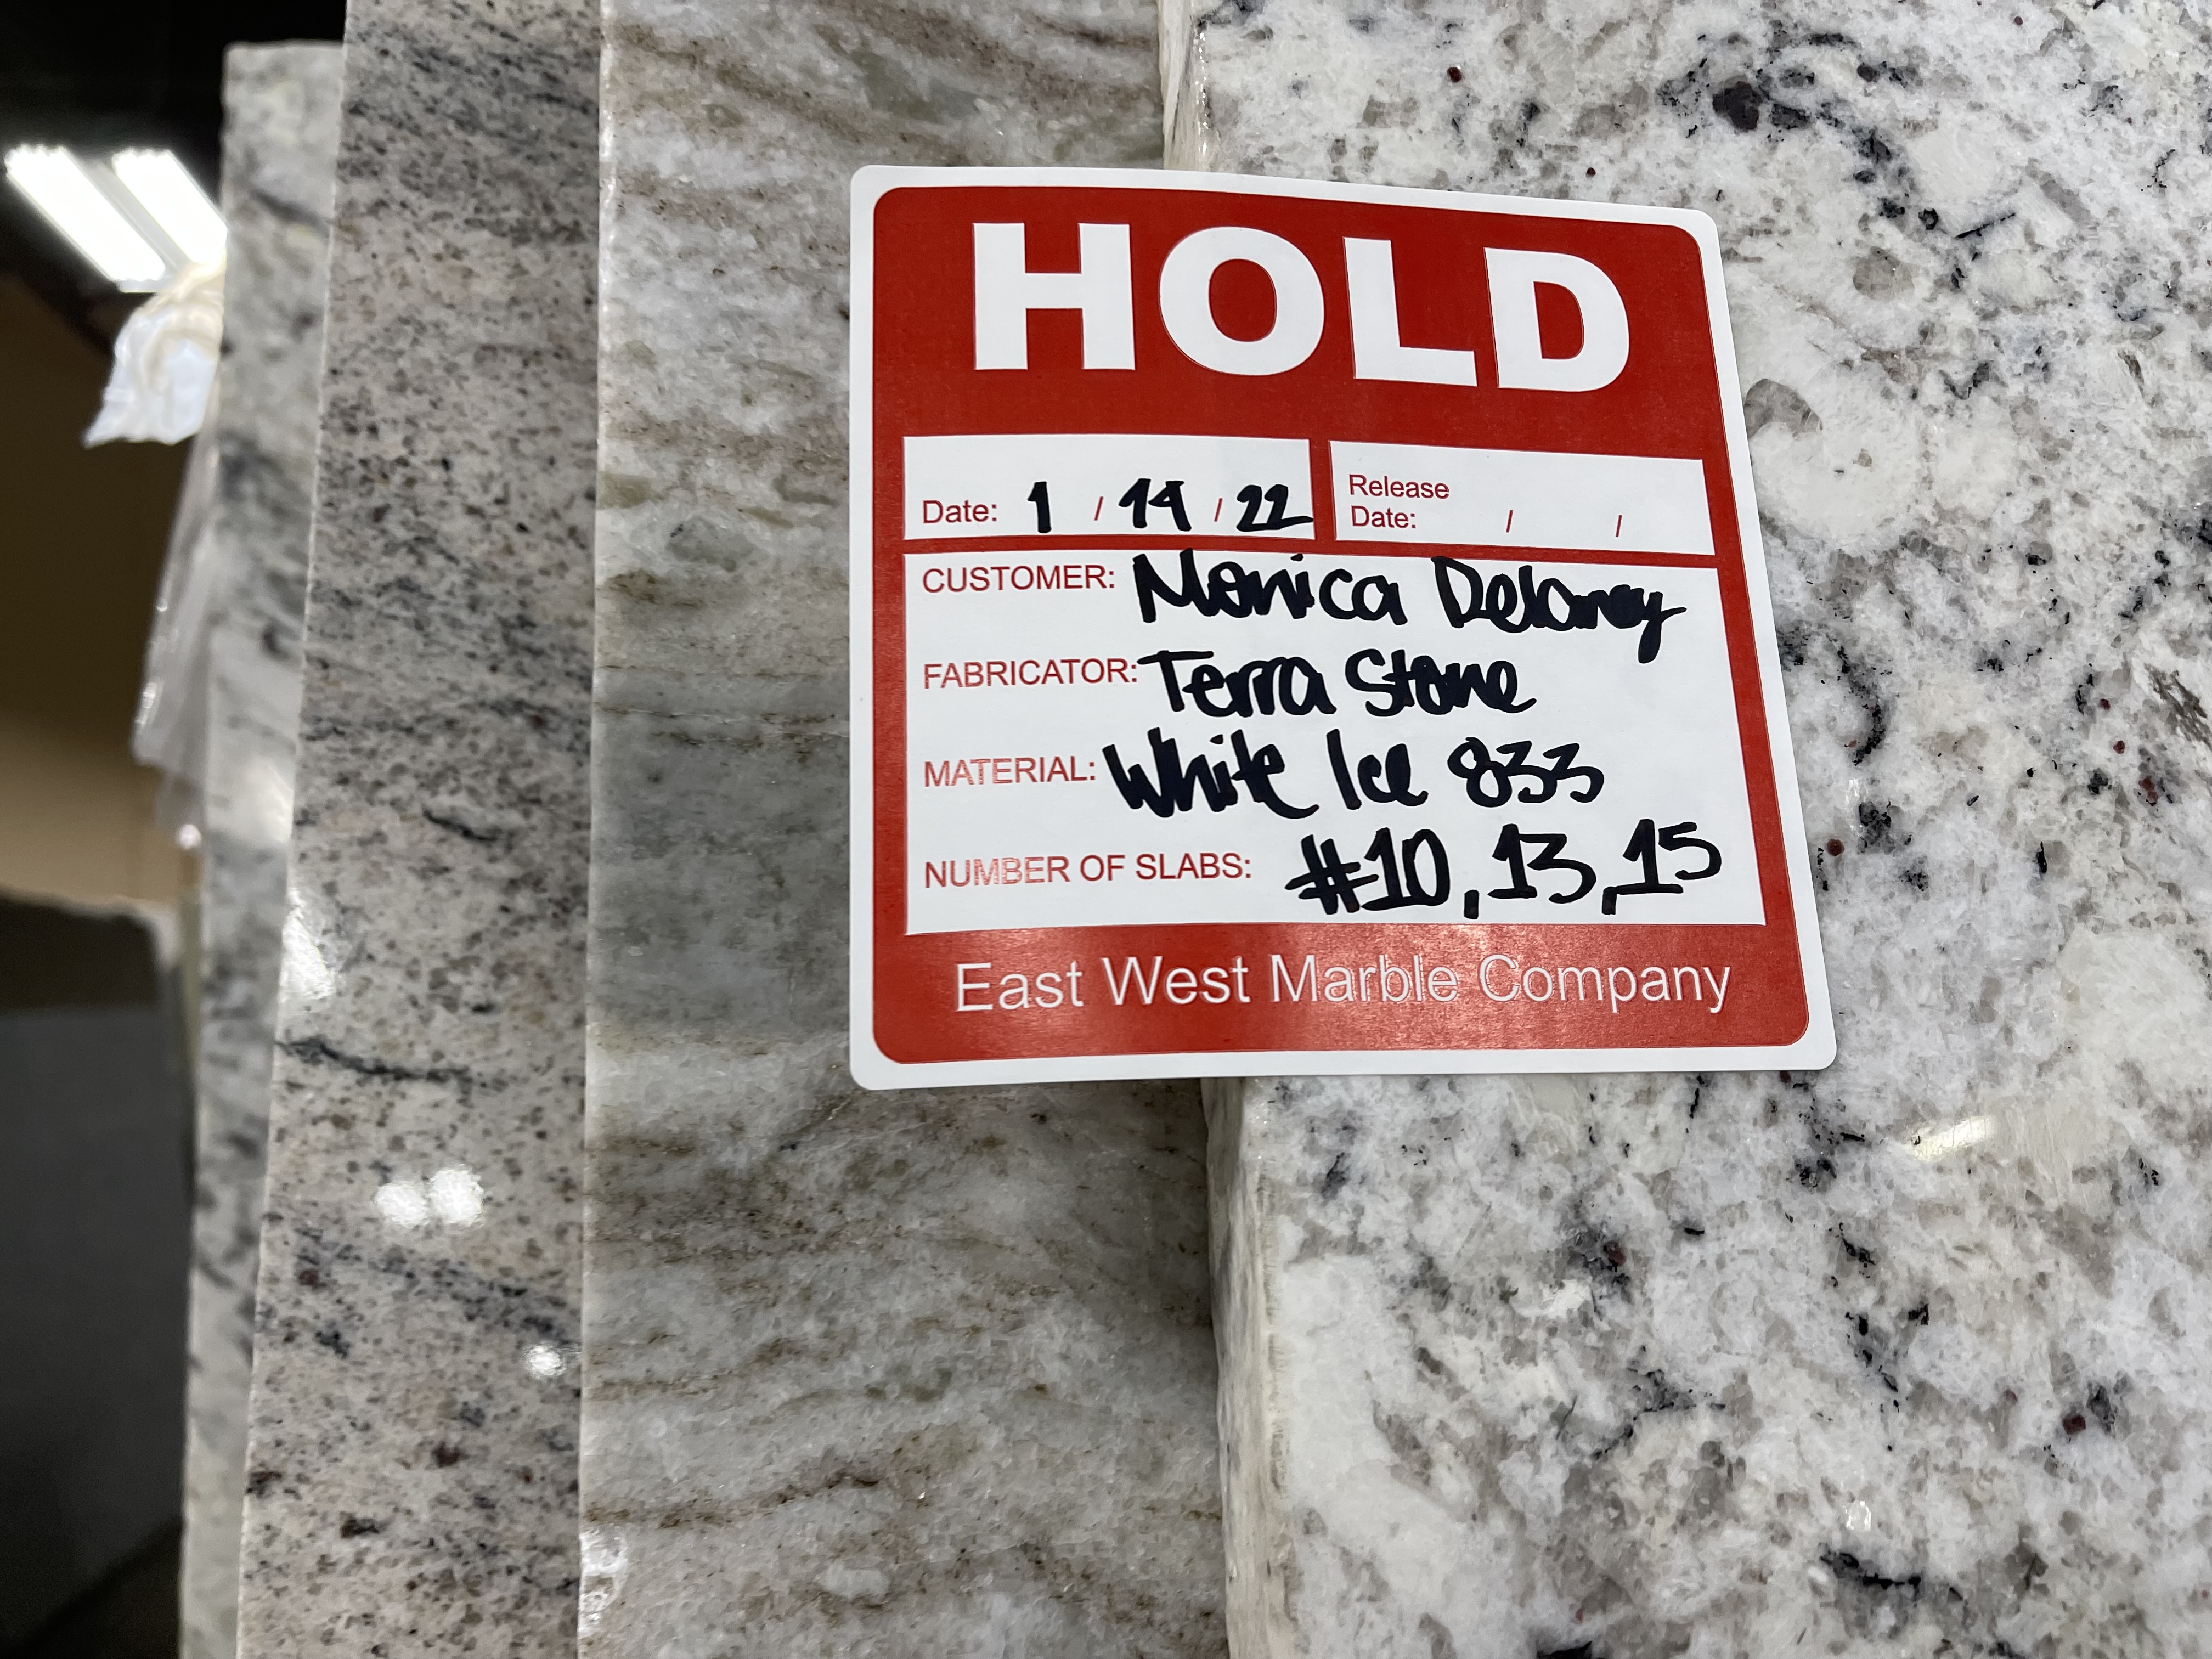 HOLD
Date: 1 / 14 / 22
Release
Date: / /
CUSTOMER: Monica Delaney
FABRICATOR: Terra Stone
MATERIAL: White Ice 833
NUMBER OF SLABS: #10, 13, 15
East West Marble Company